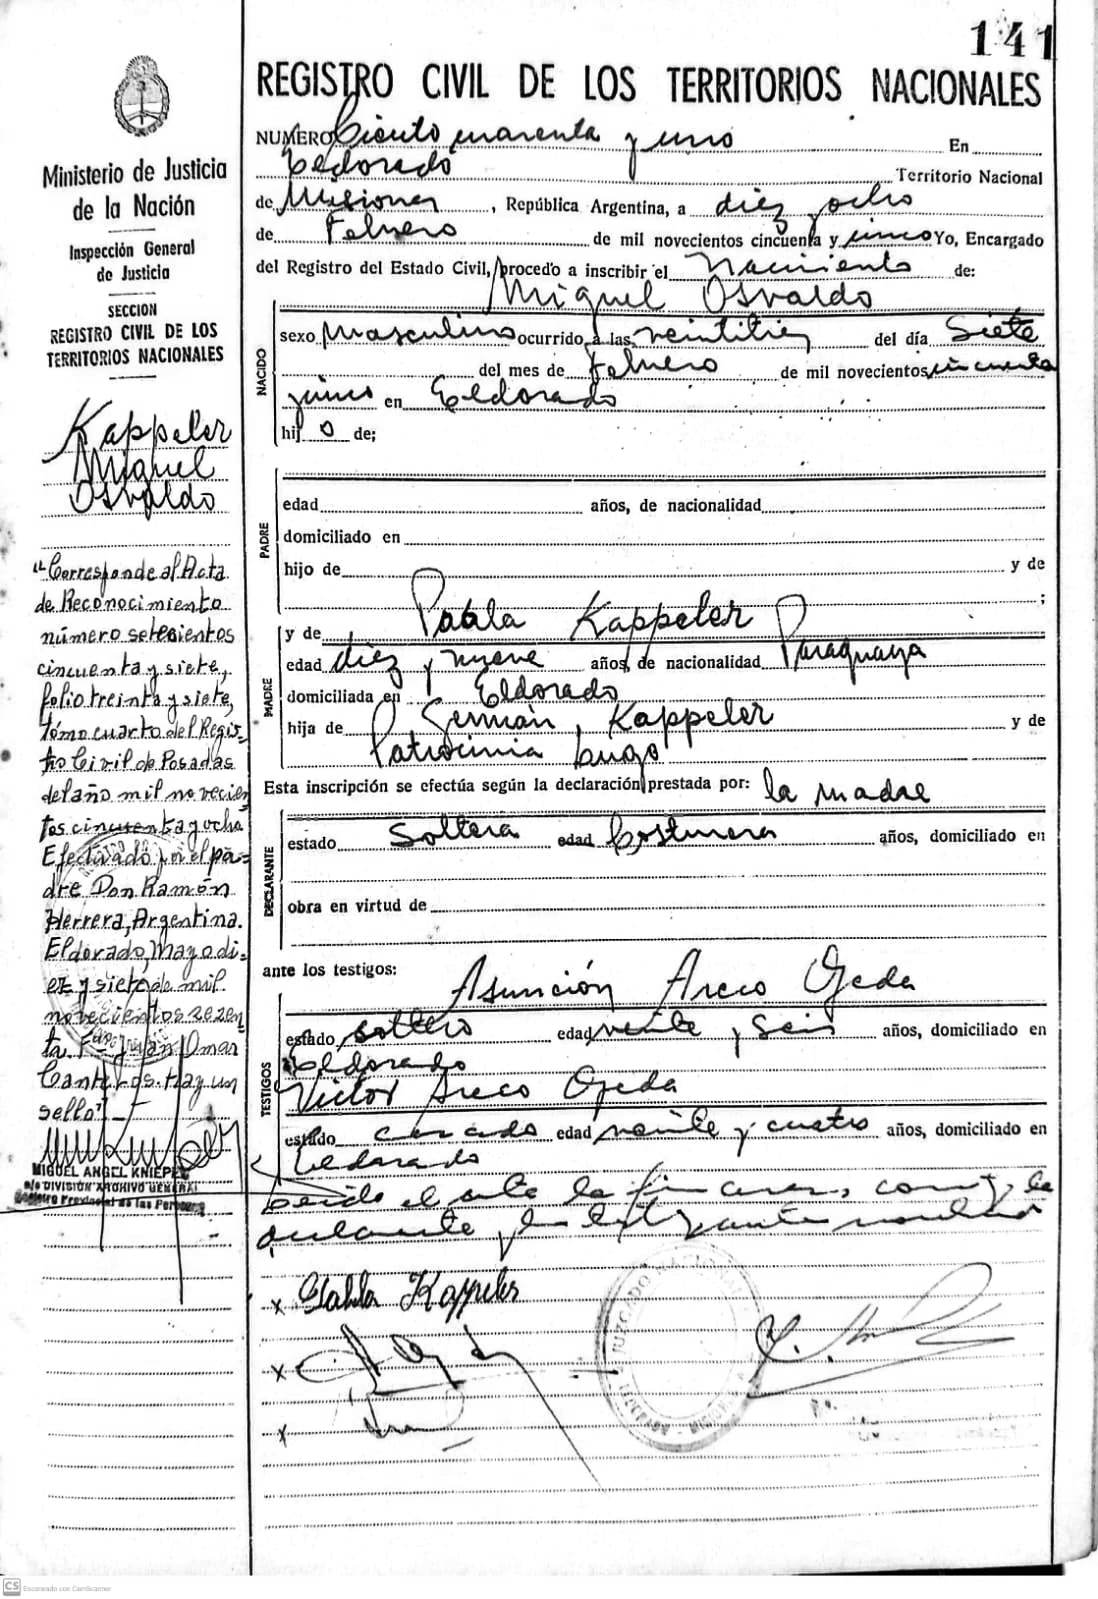 141
REGISTRO CIVIL DE LOS TERRITORIOS NACIONALES
NUMERO Ciento cuarenta y uno En
Eldorado Territorio Nacional
de Misiones, República Argentina, a diez y ocho
de Febrero de mil novecientos cincuenta y cinco Yo, Encargado
del Registro del Estado Civil, procedo a inscribir el Nacimiento de:
Miguel Osvaldo
NACIDO
sexo masculino ocurrido a las veintitres del día Siete
del mes de Febrero de mil novecientos cincuenta
y cinco en Eldorado
hijo de;
PADRE
edad años, de nacionalidad
domiciliado en
hijo de y de
;
MADRE
y de Pabla Kappeler
edad diez y nueve años, de nacionalidad Paraguaya
domiciliada en Eldorado
hija de Germán Kappeler y de
Patrocinia Lugo
Esta inscripción se efectúa según la declaración prestada por: la madre
DECLARANTE
estado Soltera edad Costurera años, domiciliado en
obra en virtud de
ante los testigos:
Asunción Areco Ojeda
TESTIGOS
estado soltero edad veinte y seis años, domiciliado en
Eldorado
Victor Areco Ojeda
estado casado edad veinte y cuatro años, domiciliado en
Eldorado
Leida el acta la firman, con
x Pabla Kappeler
x
x
JUZGADO
Ministerio de Justicia
de la Nación
Inspección General
de Justicia
SECCION
REGISTRO CIVIL DE LOS
TERRITORIOS NACIONALES
Kappeler
Miguel
Osvaldo
"Corresponde al Acta
de Reconocimiento
número setecientos
cincuenta y siete,
folio treinta y siete,
tómo cuarto del Regis-
tro Civil de Posadas
del año mil novecien
tos cincuenta y ocho
Efectivado por el pa-
dre Don Ramón
Herrera, Argentina.
Eldorado, Mayo di-
ez y siete de mil
novecientos sezen
ta. Fo Juan Omar
Canteros. Hay un
sello"
MIGUEL ANGEL KNIEPE
a/c DIVISION ARCHIVO GENERAL
Registro Provincial de las Personas
CS Escaneado con CamScanner